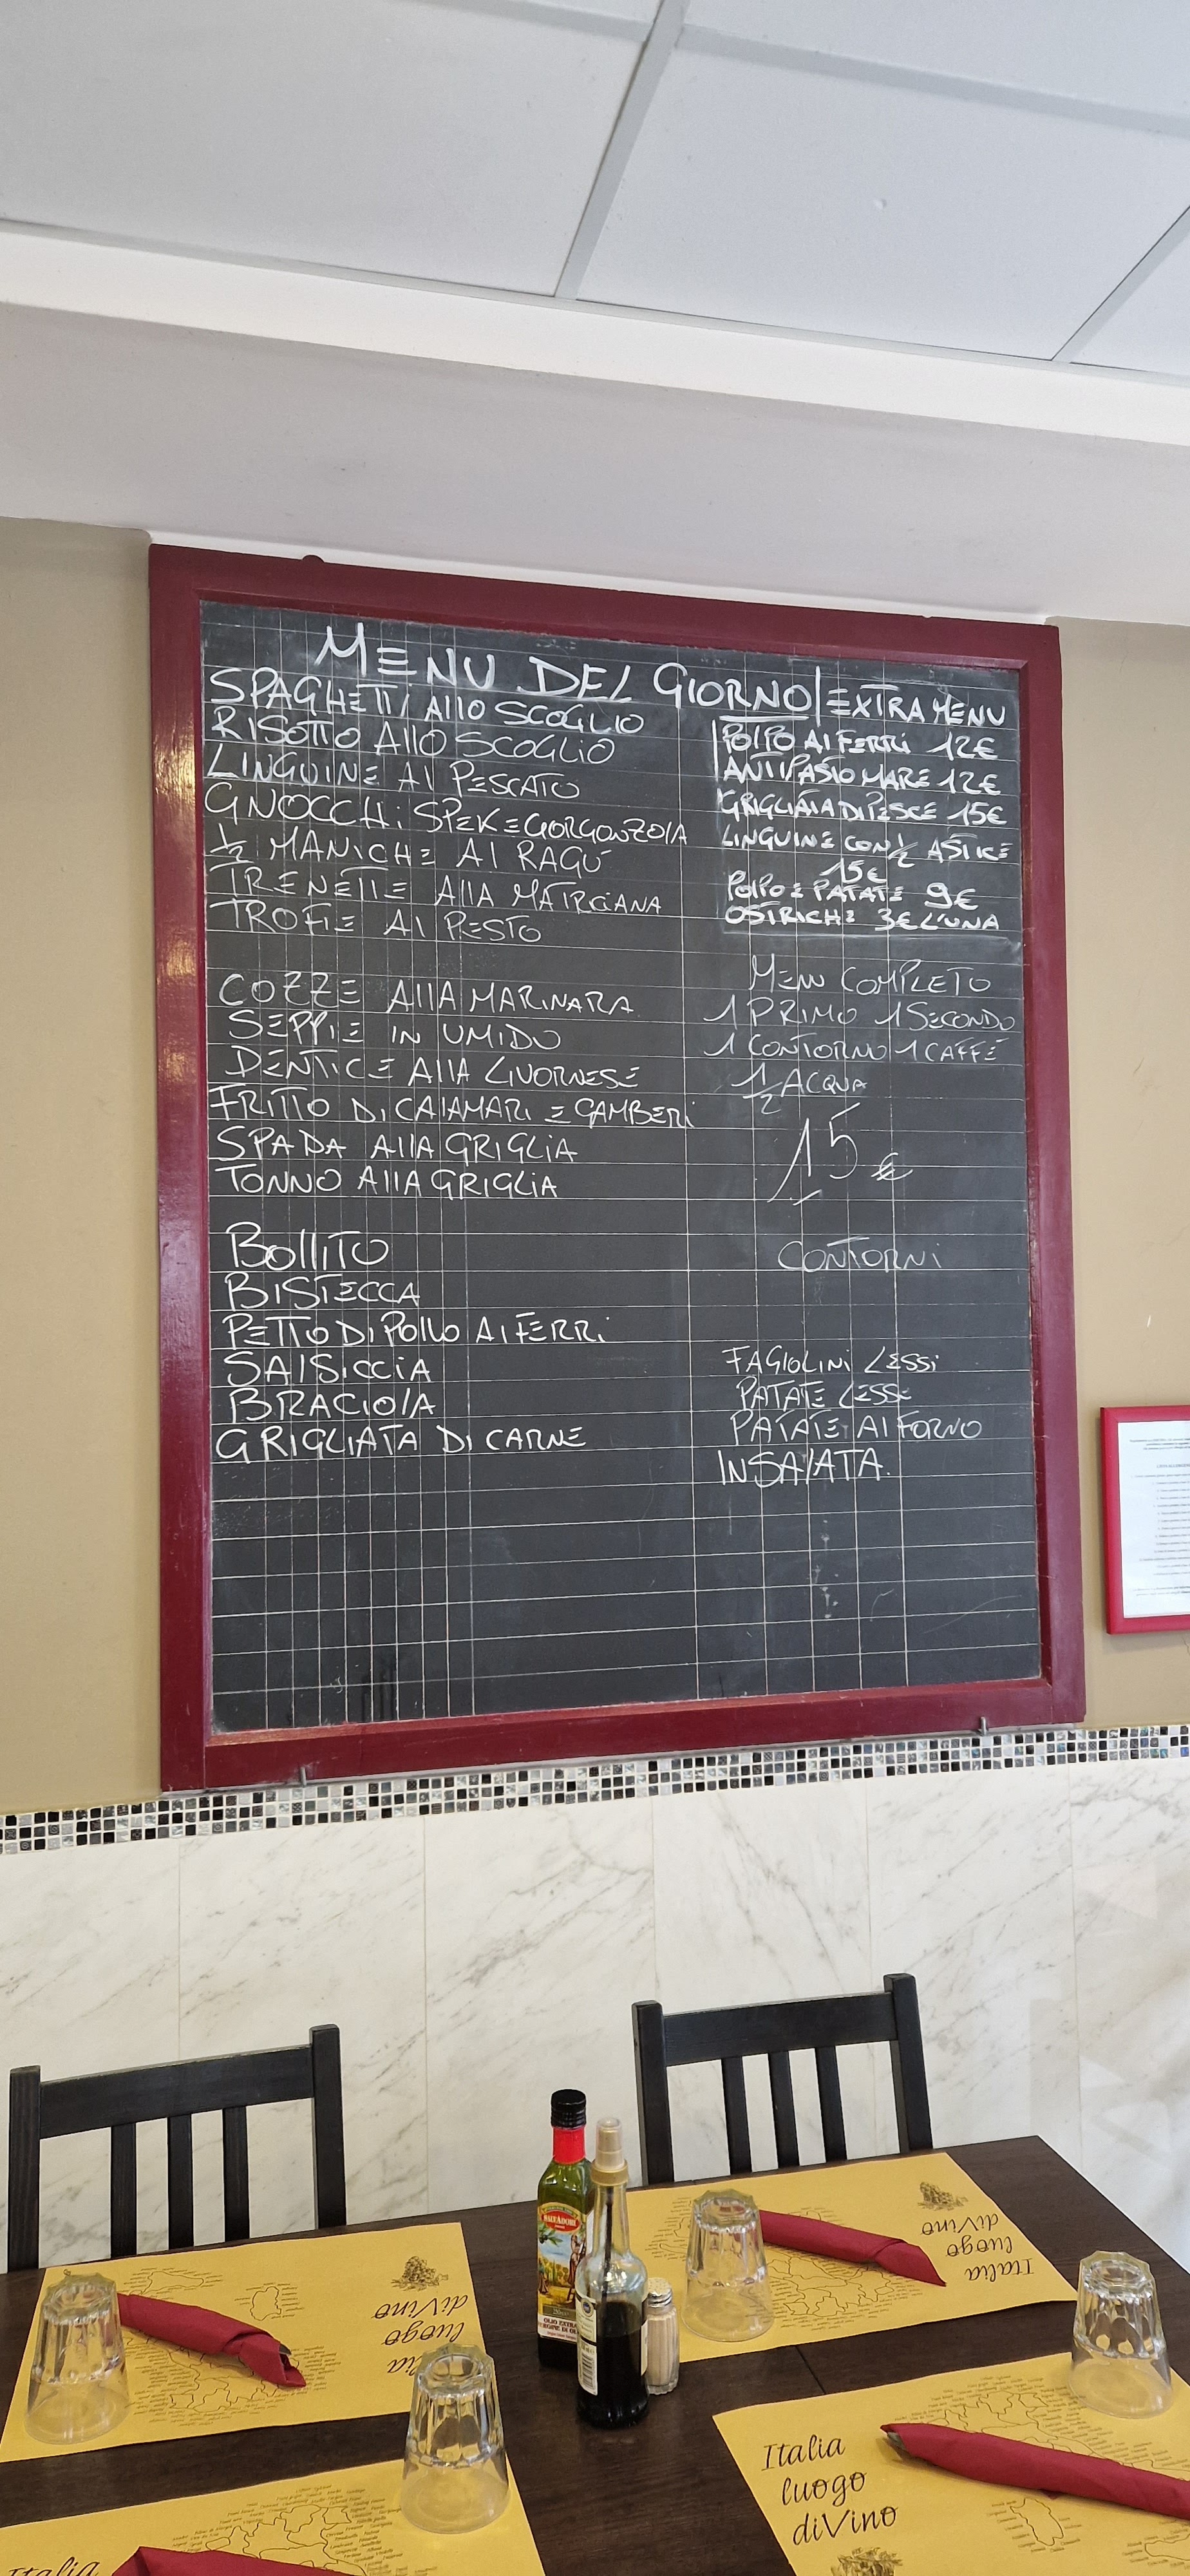 MENU DEL GIORNO
SPAGHETTI ALLO SCOGLIO
RISOTTO ALLO SCOGLIO
LINGUINE AL PESCATO
GNOCCHI SPEK E GORGONZOLA
½ MANICHE AL RAGÚ
TRENETTE ALLA MATRCIANA
TROFIE AL PESTO
COZZE ALLA MARINARA
SEPPIE IN UMIDO
DENTICE ALLA LIVORNESE
FRITTO DI CALAMARI E GAMBERI
SPADA ALLA GRIGLIA
TONNO ALLA GRIGLIA
BOLLITO
BISTECCA
PETTO DI POLLO AI FERRI
SALSICCIA
BRACIOLA
GRIGLIATA DI CARNE
EXTRA MENU
POLPO AI FERRI 12€
ANTIPASTO MARE 12€
GRIGLIATA DI PESCE 15€
LINGUINE CON ½ ASTICE
15€
POLPO E PATATE 9€
OSTRICHE 3€ L'UNA
MENU COMPLETO
1 PRIMO 1 SECONDO
1 CONTORNO 1 CAFFÉ
½ ACQUA
15 €
CONTORNI
FAGIOLINI LESSI
PATATE LESSE
PATATE AL FORNO
INSALATA.
SALVADORI
Italia
luogo
diVino
luogo
diVino
Italia
luogo
diVino
Italia